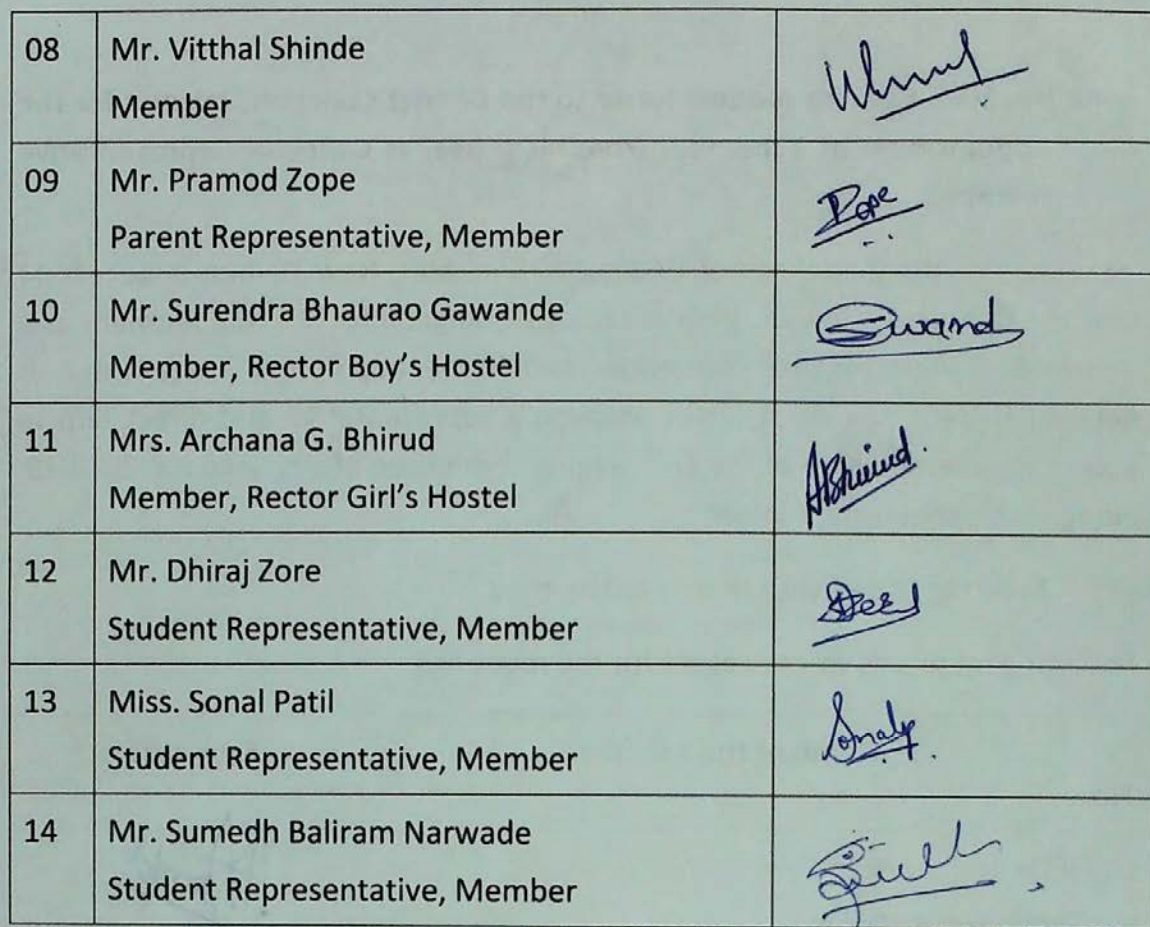 08 Mr. Vitthal Shinde
Member
09 Mr. Pramod Zope
Parent Representative, Member
10 Mr. Surendra Bhaurao Gawande
Member, Rector Boy's Hostel
11 Mrs. Archana G. Bhirud
Member, Rector Girl's Hostel
ABhirud.
12 Mr. Dhiraj Zore
Student Representative, Member
13 Miss. Sonal Patil
Student Representative, Member
14 Mr. Sumedh Baliram Narwade
Student Representative, Member